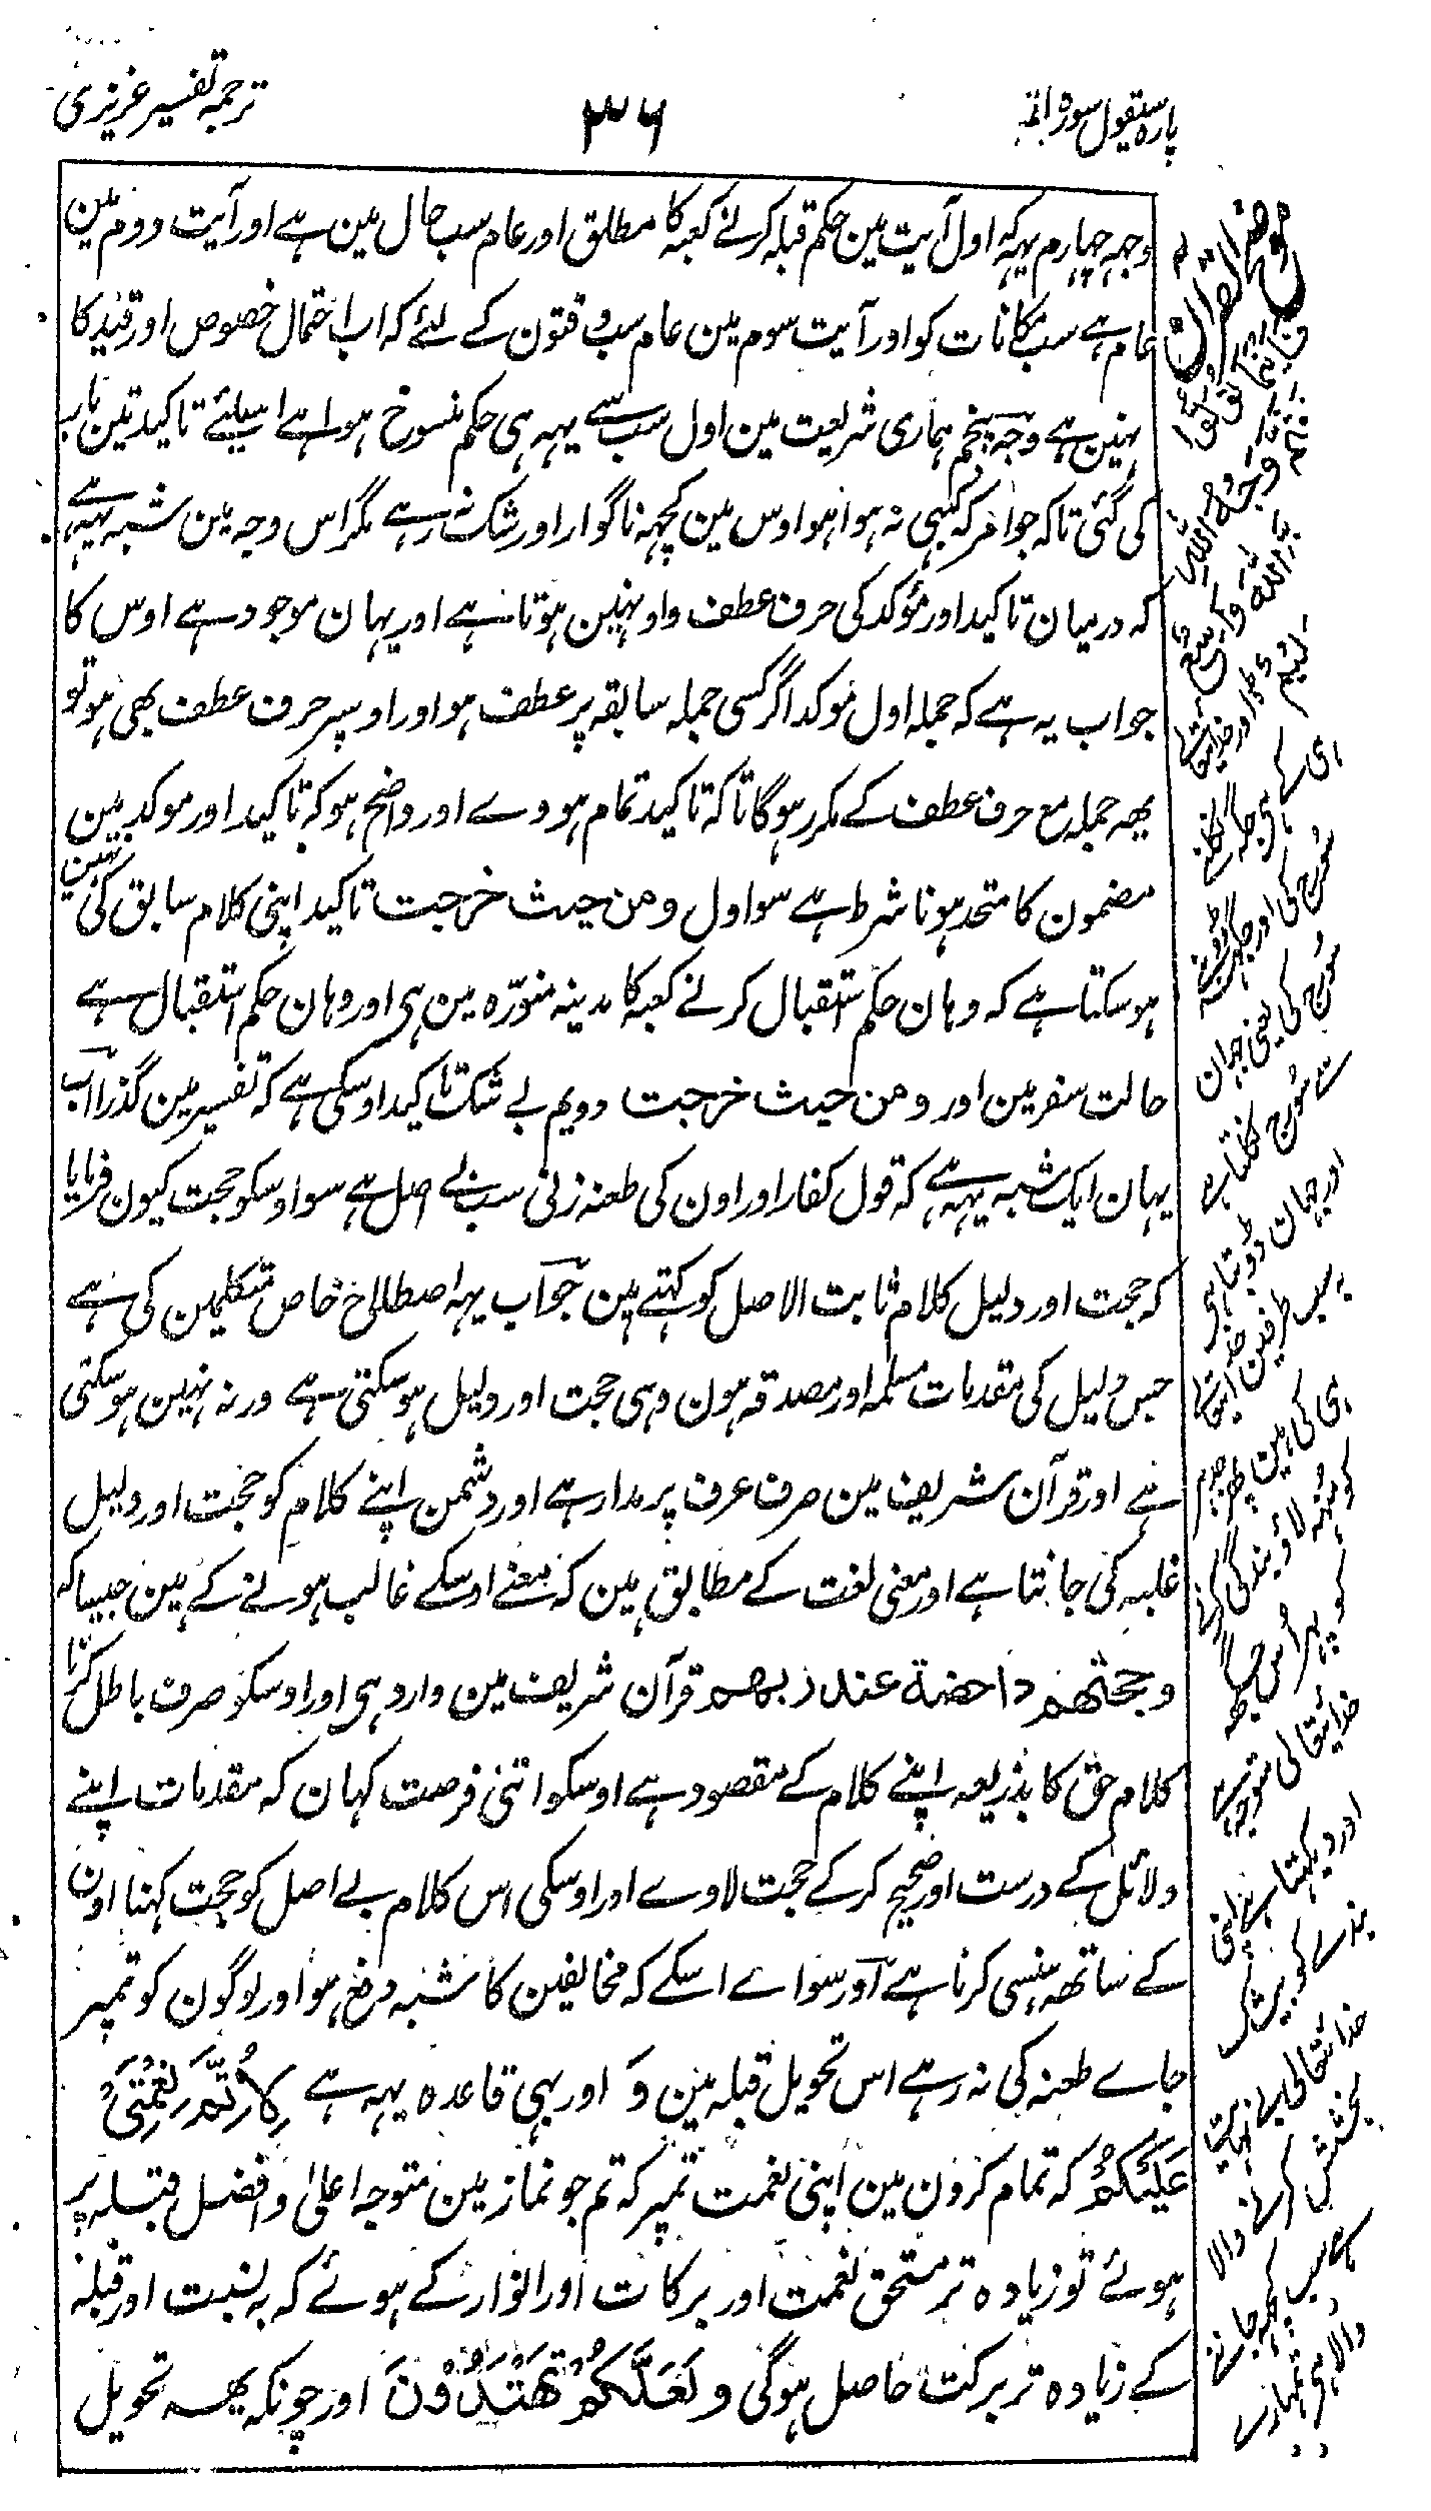 پارہ سیقول سورہ الٓمّ
۳۶
ترجمہ تفسیر عزیزی
وجہ چہارم یہہ کہ اول آیت مین حکم قبلہ کرنے کعبہ کا مطلق اور عام سب حال مین ہے اور آیت دوم مین
عام ہے سب مکانات کو اور آیت سوم مین عام سب وقتون کے لئے کہ اب احتمال خصوص اور قید کا
نہین ہے وجہ پنجم ہماری شریعت مین اول سب سے یہہ ہی حکم منسوخ ہوا ہے اسیلئے تاکید تین بار
کی گئی تاکہ جو امر کہ کبہی نہ ہوا ہو اوس مین کچہہ ناگوار اور شک نہ رہے مگر اس وجہ مین شبہ یہہ ہے
کہ درمیان تاکید اور مؤکد کی حرف عطف واو نہین ہوتا ہے اور یہان موجود ہے اوس کا
جواب یہ ہے کہ جملہ اول مؤکد اگر کسی جملہ سابقہ پر عطف ہو اور اوسپر حرف عطف بھی ہو تو
یھہ جملہ مع حرف عطف کے مکرر ہوگا تاکہ تاکید تمام ہووے اور واضح ہو کہ تاکید اور موکد مین
مضمون کا متحد ہونا شرط ہے سو اول ومن حیث خرجت تاکید اپنی کلام سابق کی نہین
ہو سکتا ہے کہ وہان حکم استقبال کرنے کعبہ کا مدینہ منوّرہ مین ہی اور وہان حکم استقبال ہے
حالت سفر مین اور ومن حیث خرجت دویم بے شک تاکید اوسکی ہے کہ تفسیر مین گذرا اب
یہان ایک شبہ یہہ ہے کہ قول کفار اور اون کی طعنہ زنی سب بے اصل ہے سو اوسکو حجت کیون فرمایا
کہ حجت اور دلیل کلام ثابت الاصل کو کہتے ہین جواب یہہ اصطلاح خاص متکلمین کی ہے
جس دلیل کی مقدمات مسلمہ اور مصدقہ ہون وہی حجت اور دلیل ہو سکتی ہے ورنہ نہین ہو سکتی
ہے اور قرآن شریف مین صرف عرف پر مدار ہے اور دشمن اپنے کلام کو حجت اور دلیل
غلبہ کی جانتا ہے اور معنی لغت کے مطابق ہین کہ معنے اوسکے غالب ہونے کے ہین جیسا کہ
وحجتھم داحضة عند ربھم قرآن شریف مین وارد ہی اور اوسکو صرف باطل کرنا
کلام حق کا بذریعہ اپنے کلام کے مقصود ہے اوسکو اتنی فرصت کہان کہ مقدمات اپنے
دلائل کے درست اور صحیح کرکے حجت لاوے اور اوسکی اس کلام بے اصل کو حجت کہنا اون
کے ساتھہ ہنسی کرنا ہے اور سواے اسکے کہ مخالفین کا شبہ دفع ہو اور لوگون کو تمپر
جاے طعنہ کی نہ رہے اس تحویل قبلہ مین وَ اور بہی قاعدہ یہہ ہے لِاُتِمَّ نِعْمَتِیْ
عَلَیْکُمْ کہ تمام کرون مین اپنی نعمت تمپر کہ تم جو نماز مین متوجہ اعلیٰ و افضل قبلہ پر
ہوئے تو زیادہ تر مستحق نعمت اور برکات اور انوار کے ہوئے کہ بہ نسبت اور قبلہ
کے زیادہ تر برکت حاصل ہوگی وَ لَعَلَّکُمْ تَھْتَدُوْنَ اور چونکہ یھہ تحویل
موضح القرآن
فاینما تولوا
فثم وجہ اللہ
ان اللہ واسع
علیم اور خدایتعالے
ہی کے ہی جگہ نکلنے
سورج کی اور جگہ ڈوبنے
سورج کی یعنی جہان
سے سورج نکلتا ہے
اور جہان ڈوبتا ہی
یہ سب طرفین خدایتعالے
ہی کی ہین پھر جدہر
کو منہ لاؤ بندگی کرنے
کو پہر اس جگہ
خدایتعالی متوجہ ہے
اور دیکہتا ہے اپنی
بندے کو بیشک
خدایتعالی بے نہایت
بخشش کرنے والا
سب کچہہ جاننے
والا ہی تمہارے